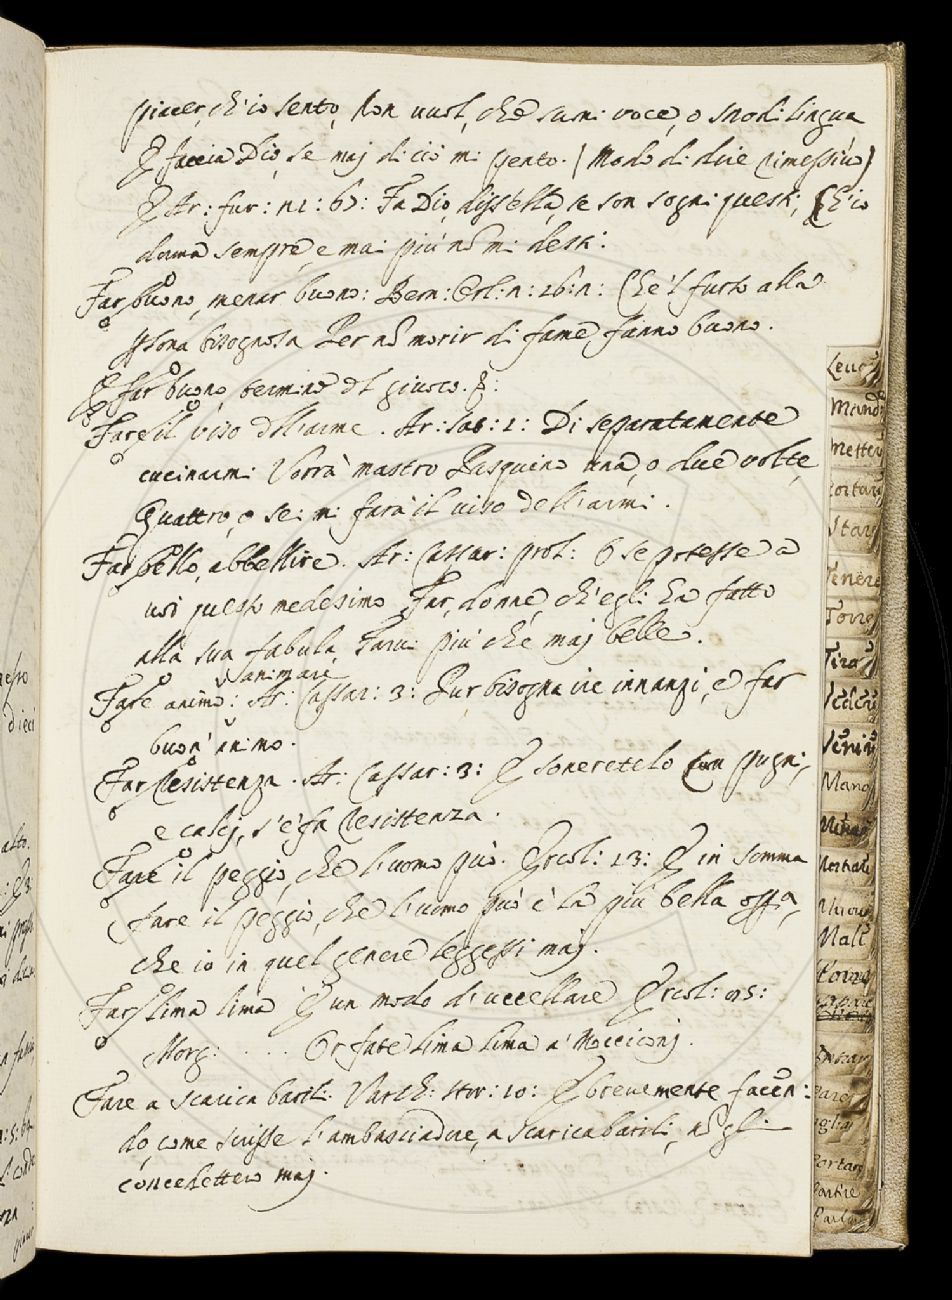 piacer, ch'io sento, non vuol, che formi voce, o snodi lingua
E faccia Dio, se maj di ciò mi pento. (Modo di dire rimessivo)
E Ar: fur: 67: Fa Dio, diss'ella, se son sogni questi, Ch'io
dorma sempre, e mai più nō mi desti.
Far buono, menar buono: Bern: Orl: n: 26: n: Che'l furto alla
psona bisognosa Per nō morir di fame fanno buono.
E far buono, termine dl giuoco.
Fare il viso dell'arme. Ar: sat: 1: Di separatamente
cucinarmi Vorrà mastro Pasquino una, o due volte,
Quattro, o sei mi farà il viso dell'armi.
Far bello, abbellire. Ar: Cassar: prol: O se potesse a
voi questo medesimo Far, donne, ch'egli ha fatto
alla sua fabula, Farvi più che maj belle.
animare
Fare animo: Ar: Cassar: 3: Pur bisogna ire innanzi, e far
buon'animo.
Far Resistenza. Ar: Cassar: 3: E soneretelo con pugni,
e calcj, s'e' fa Resistenza.
Fare il peggio, che l'uomo può. Ercol: 13: E in somma
fare il peggio, che l'uomo può è la più bella
che io in quel genere leggessi maj.
Far lima lima È un modo d'uccellare Ercol: 95:
Morg: .... Or fate lima lima a' Mocciconj.
Fare a scarica barili. Varch: Stor: 10: E brevemente facen:
do, come scrisse l'ambasciadore, a scaricabarili, nō gli
concedettero maj.
Mettere
Stare
Tenere
Torre
Tirar
Vedere
Venire
Mano
Portar
Partire